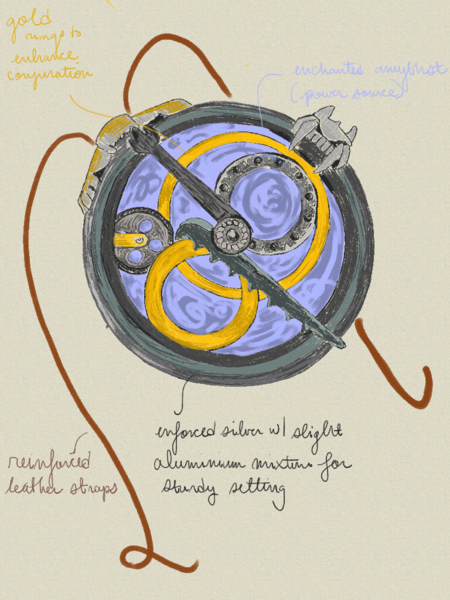 gold
rings to
enhance
conjuration
enchanted amythst
(power source)
enforced silver w/ slight
aluminum mixture for
sturdy setting
reinforced
leather straps